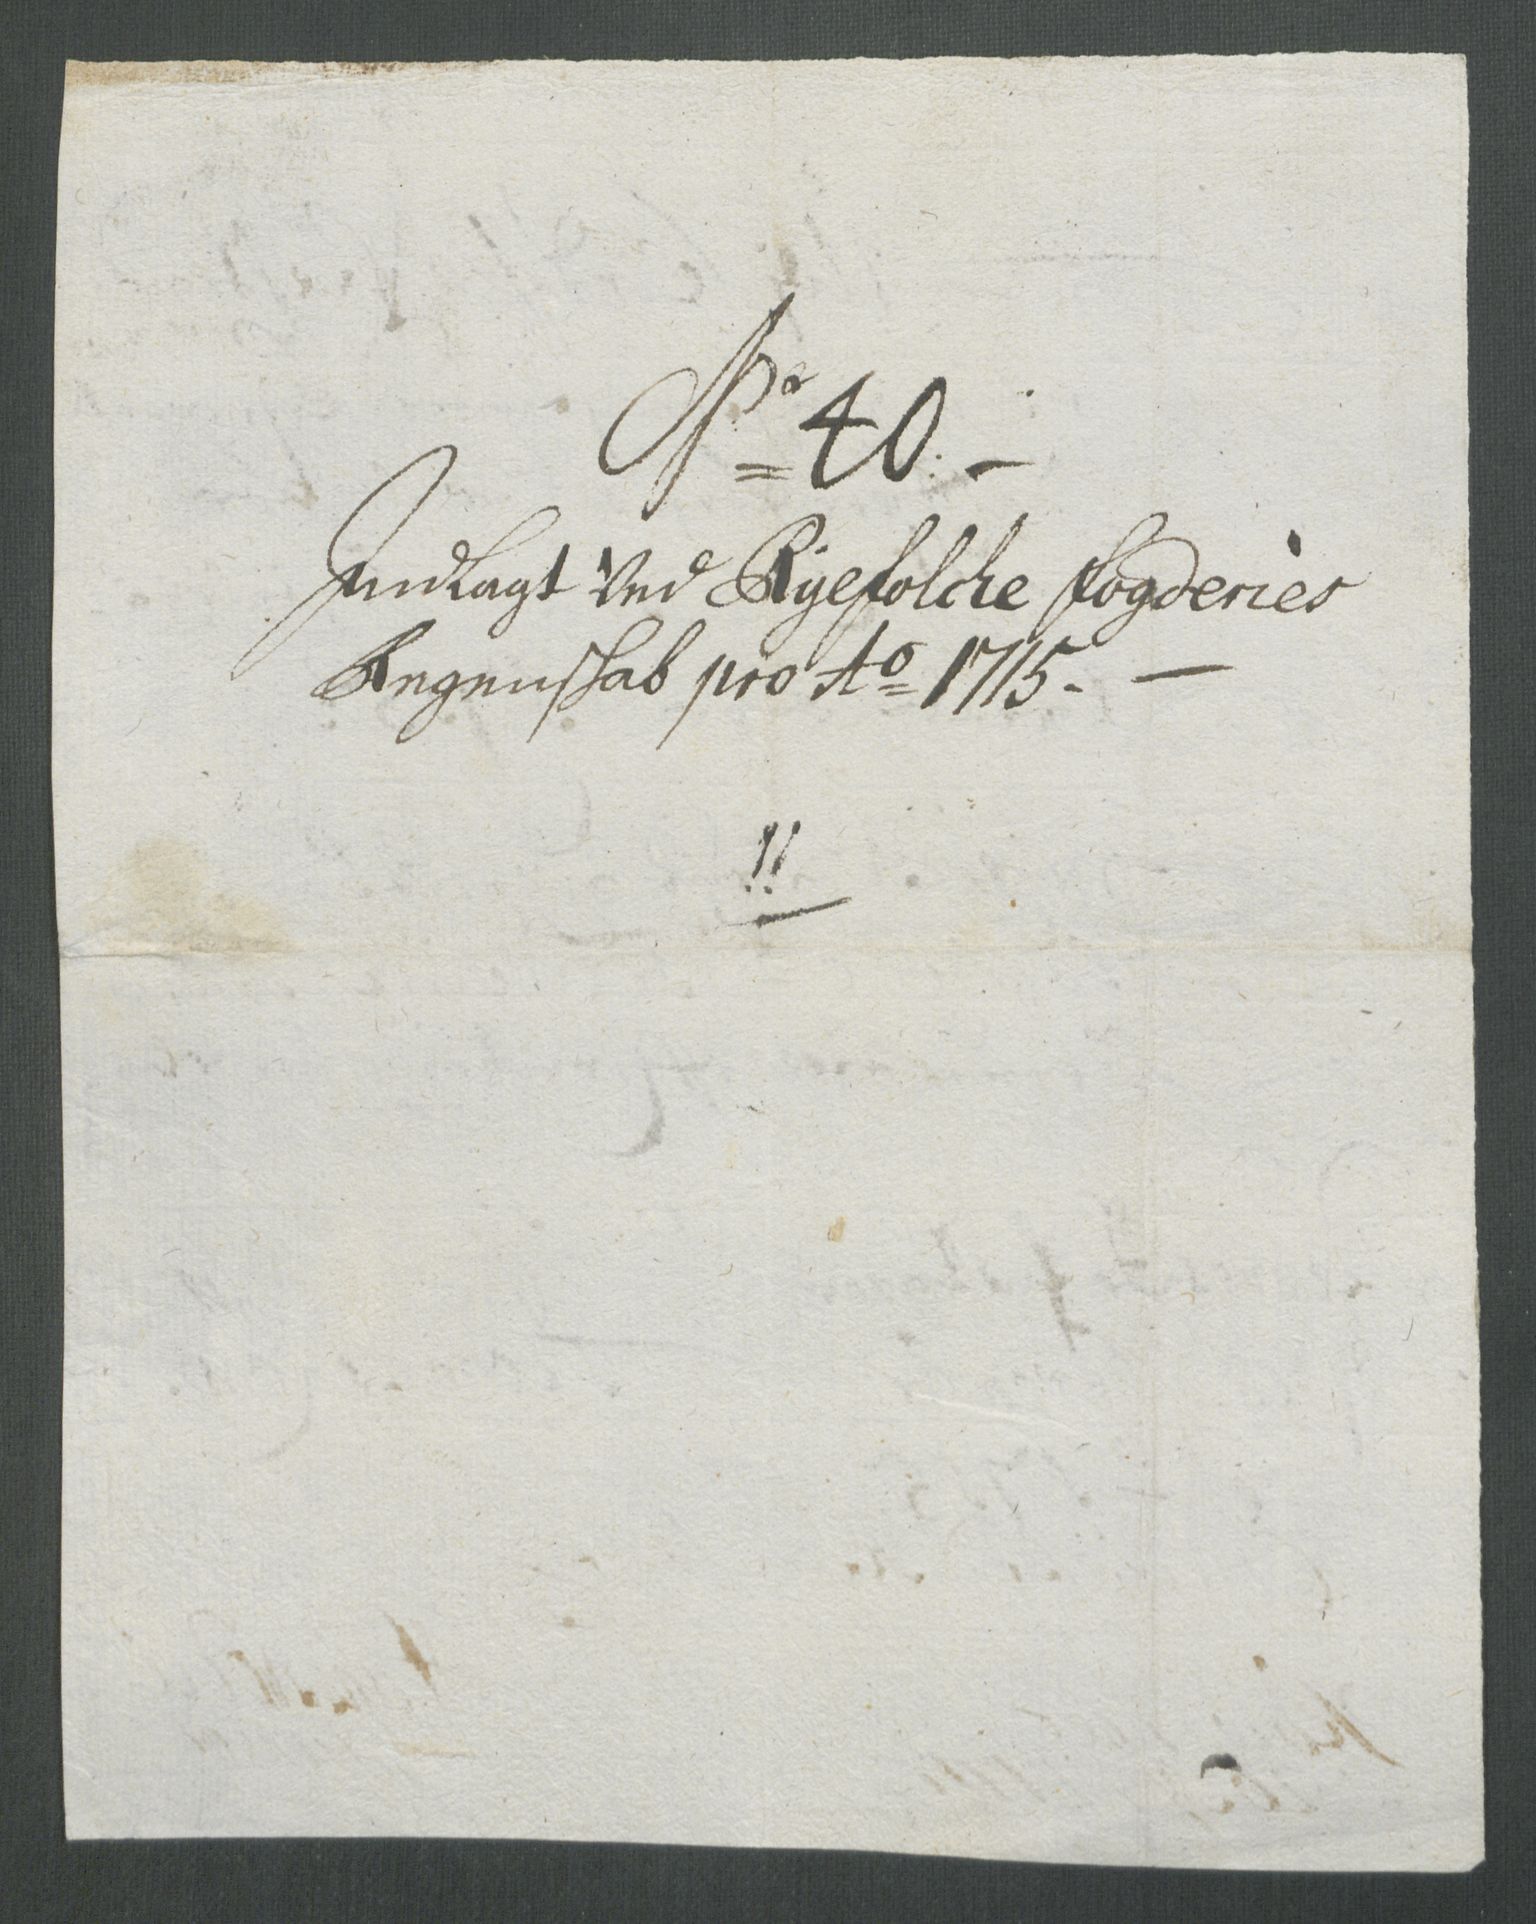 No 40. –
Indlagt Ved Ryefolche fogderies
Regenskab pro Ao 1715. –